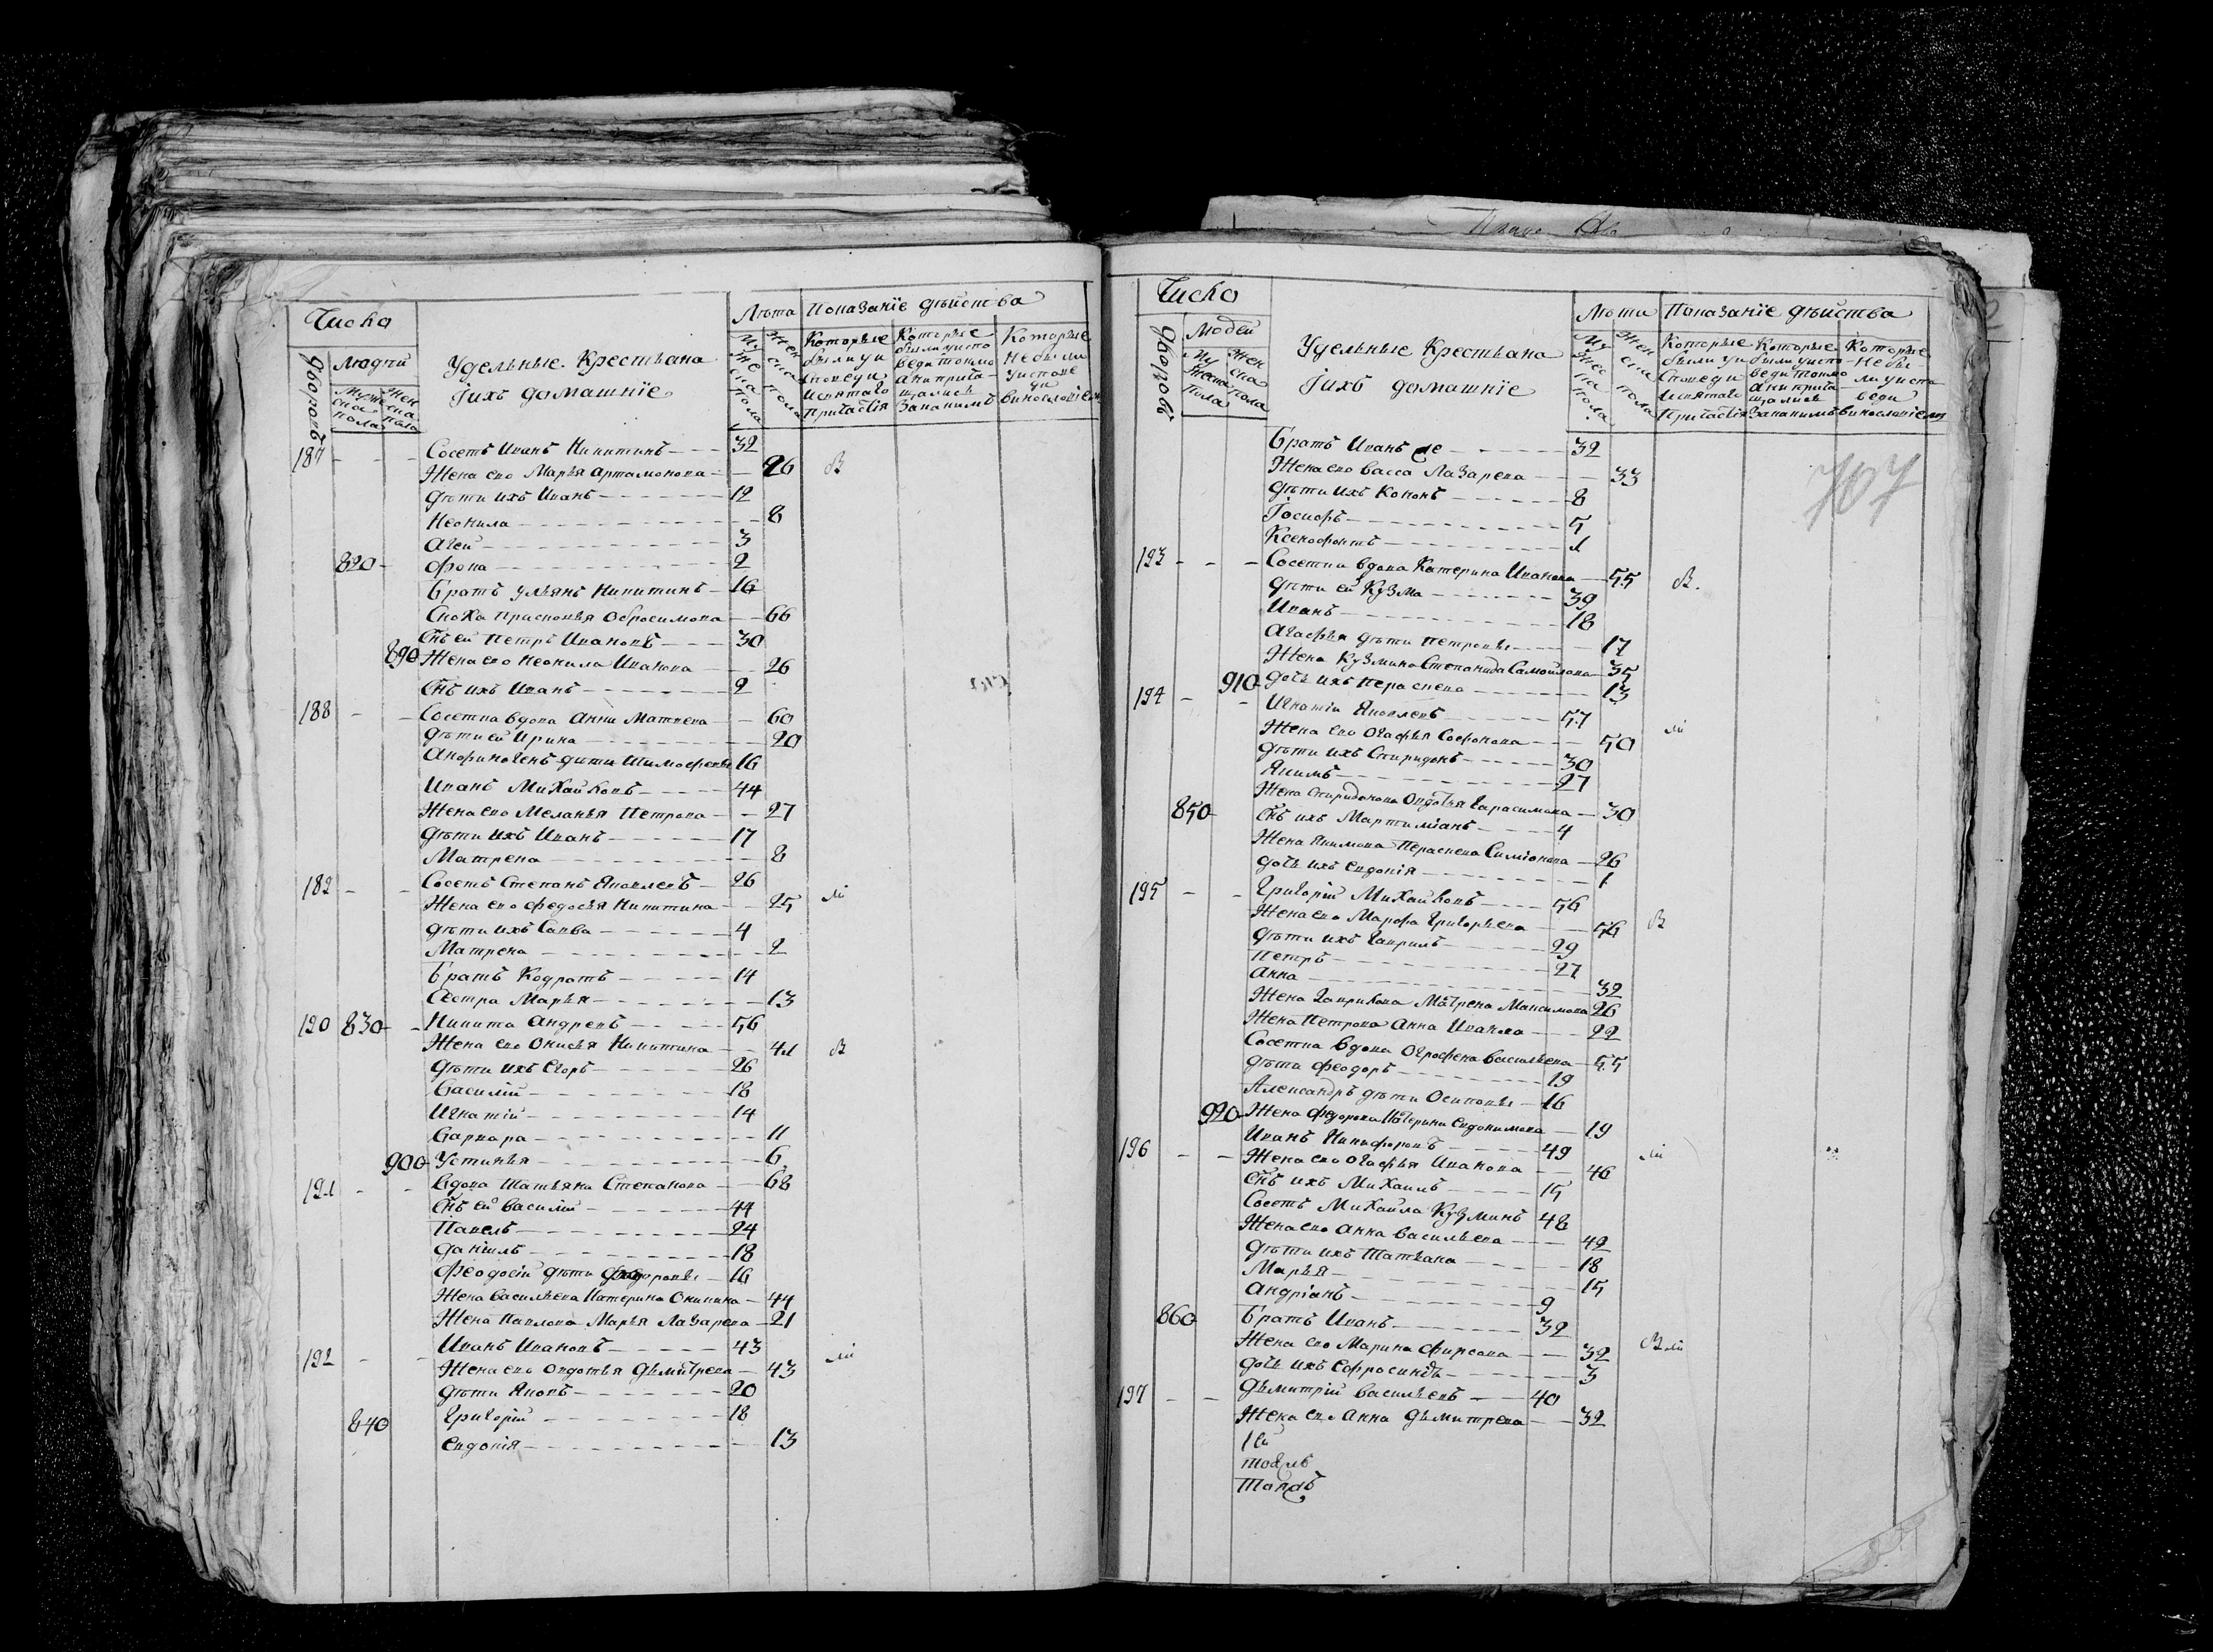 Число
Дворовъ
Людей
Мужеска пола
Женска пола
Удельные Крестьяна
Iихъ домашнiе
Лѣта
Мужеска пола
Женска пола
Показанiе дѣйства
Которые были у исповеди и святаго причастiя
Которые были у исповеди токмо а не причащались
Которые не были у исповеди
187 Сосетъ Иванъ Никитинъ 32
Жена ево Марья Артамонова 26 В
Дѣти ихъ Иванъ 12
Неонила 8
Агей 3
820 Фока 2
Братъ Ульянъ Никитинъ 16
Сноха Прасковья Обросимова 66
Сынъ ей Петръ Ивановъ 30
890 Жена ево Неонила Иванова 26
Сынъ ихъ Иванъ 2
188 Сосетка вдова Анна Матвева 60
Дѣти ей Ирина 20
Анфиногенъ дѣти Тимофеевы 16
Иванъ Михайловъ 44
Жена ево Меланья Петрова 27
Дѣти ихъ Иванъ 17
Матрена 8
189 Сосетъ Степанъ Яковлевъ 26
Жена ево Федосья Никитина 25
Дѣти ихъ Савва 4
Матрена 2
Братъ Кодратъ 14
Сестра Марья 13
190 830 Никита Андревъ 56
Жена ево Онисья Никитина 41 В
Дѣти ихъ Егоръ 26
Василiй 18
Игнатiй 14
Варвара 11
900 Устинья 6
191 Вдова Татьяна Степанова 68
Сынъ ей Василiй 44
Павелъ 24
Данiилъ 18
Феодосiй дѣти Федоровы 16
Жена Васильева Катерина 44
Жена Павлова Марья Лазарева 21
192 Иванъ Ивановъ 43
Жена ево Овдотья Дьмитрева 43
Дѣти Яковъ 20
840 Григорiй 18
Евдокiя 13
Число
Дворовъ
Людей
Мужеска пола
Женска пола
Удельные Крестьяна
Iихъ домашнiе
Лѣта
Мужеска пола
Женска пола
Показанiе дѣйства
Которые были у исповеди и святаго причастiя
Которые были у исповеди токмо а не причащались
Которые не были у исповеди
707
Братъ Иванъ же 32
Жена ево Васса Лазарева 33
Дѣти ихъ Кононъ 8
Iосифъ 5
Ксенофонтъ 1
193 Сосетка вдова Катерина Иванова 55 В.
Дѣти ей Кузма 39
Иванъ 18
Агафья дѣти Петровы 17
Жена Кузмина Степанида Самойлова 35
910 Дочь ихъ Пераскева 13
194 Игнатiй Яковлевъ 57
Жена ево Огафья Софонова 50
Дѣти ихъ Спиридонъ 30
Якимъ 27
Жена Спиридонова Овдотья Гарасимова 30
850 Сынъ ихъ Мартимiанъ 4
Жена Якимова Пераскева Симiонова 26
Дочь ихъ Евдокiя 1
195 Григорiй Михайловъ 56
Жена ево Марфа Григорьева 56 В
Дѣти ихъ Гаврилъ 29
Петръ 27
Анна 32
Жена Гаврилова Матрена Максимова 26
Жена Петрова Анна Иванова 22
Сосетка вдова Ографена Васильева 55
Дѣти Феодоръ 19
Александръ дѣти Осиповы 16
920 Жена Федорова Катерина Евдокимова 19
196 Иванъ Никифоровъ 49
Жена ево Огафья Иванова 46
Сынъ ихъ Михаилъ 15
Сосетъ Михайла Кузминъ 48
Жена ево Анна Васильева 42
Дѣти ихъ Татьяна 18
Марья 15
Андрiанъ 9
860 Братъ Иванъ 32
Жена ево Марина Фирсова 32 В
Дочь ихъ Ефросинья 3
197 Дьмитрiй Васильевъ 40
Жена ево Анна Дьмитрева 32